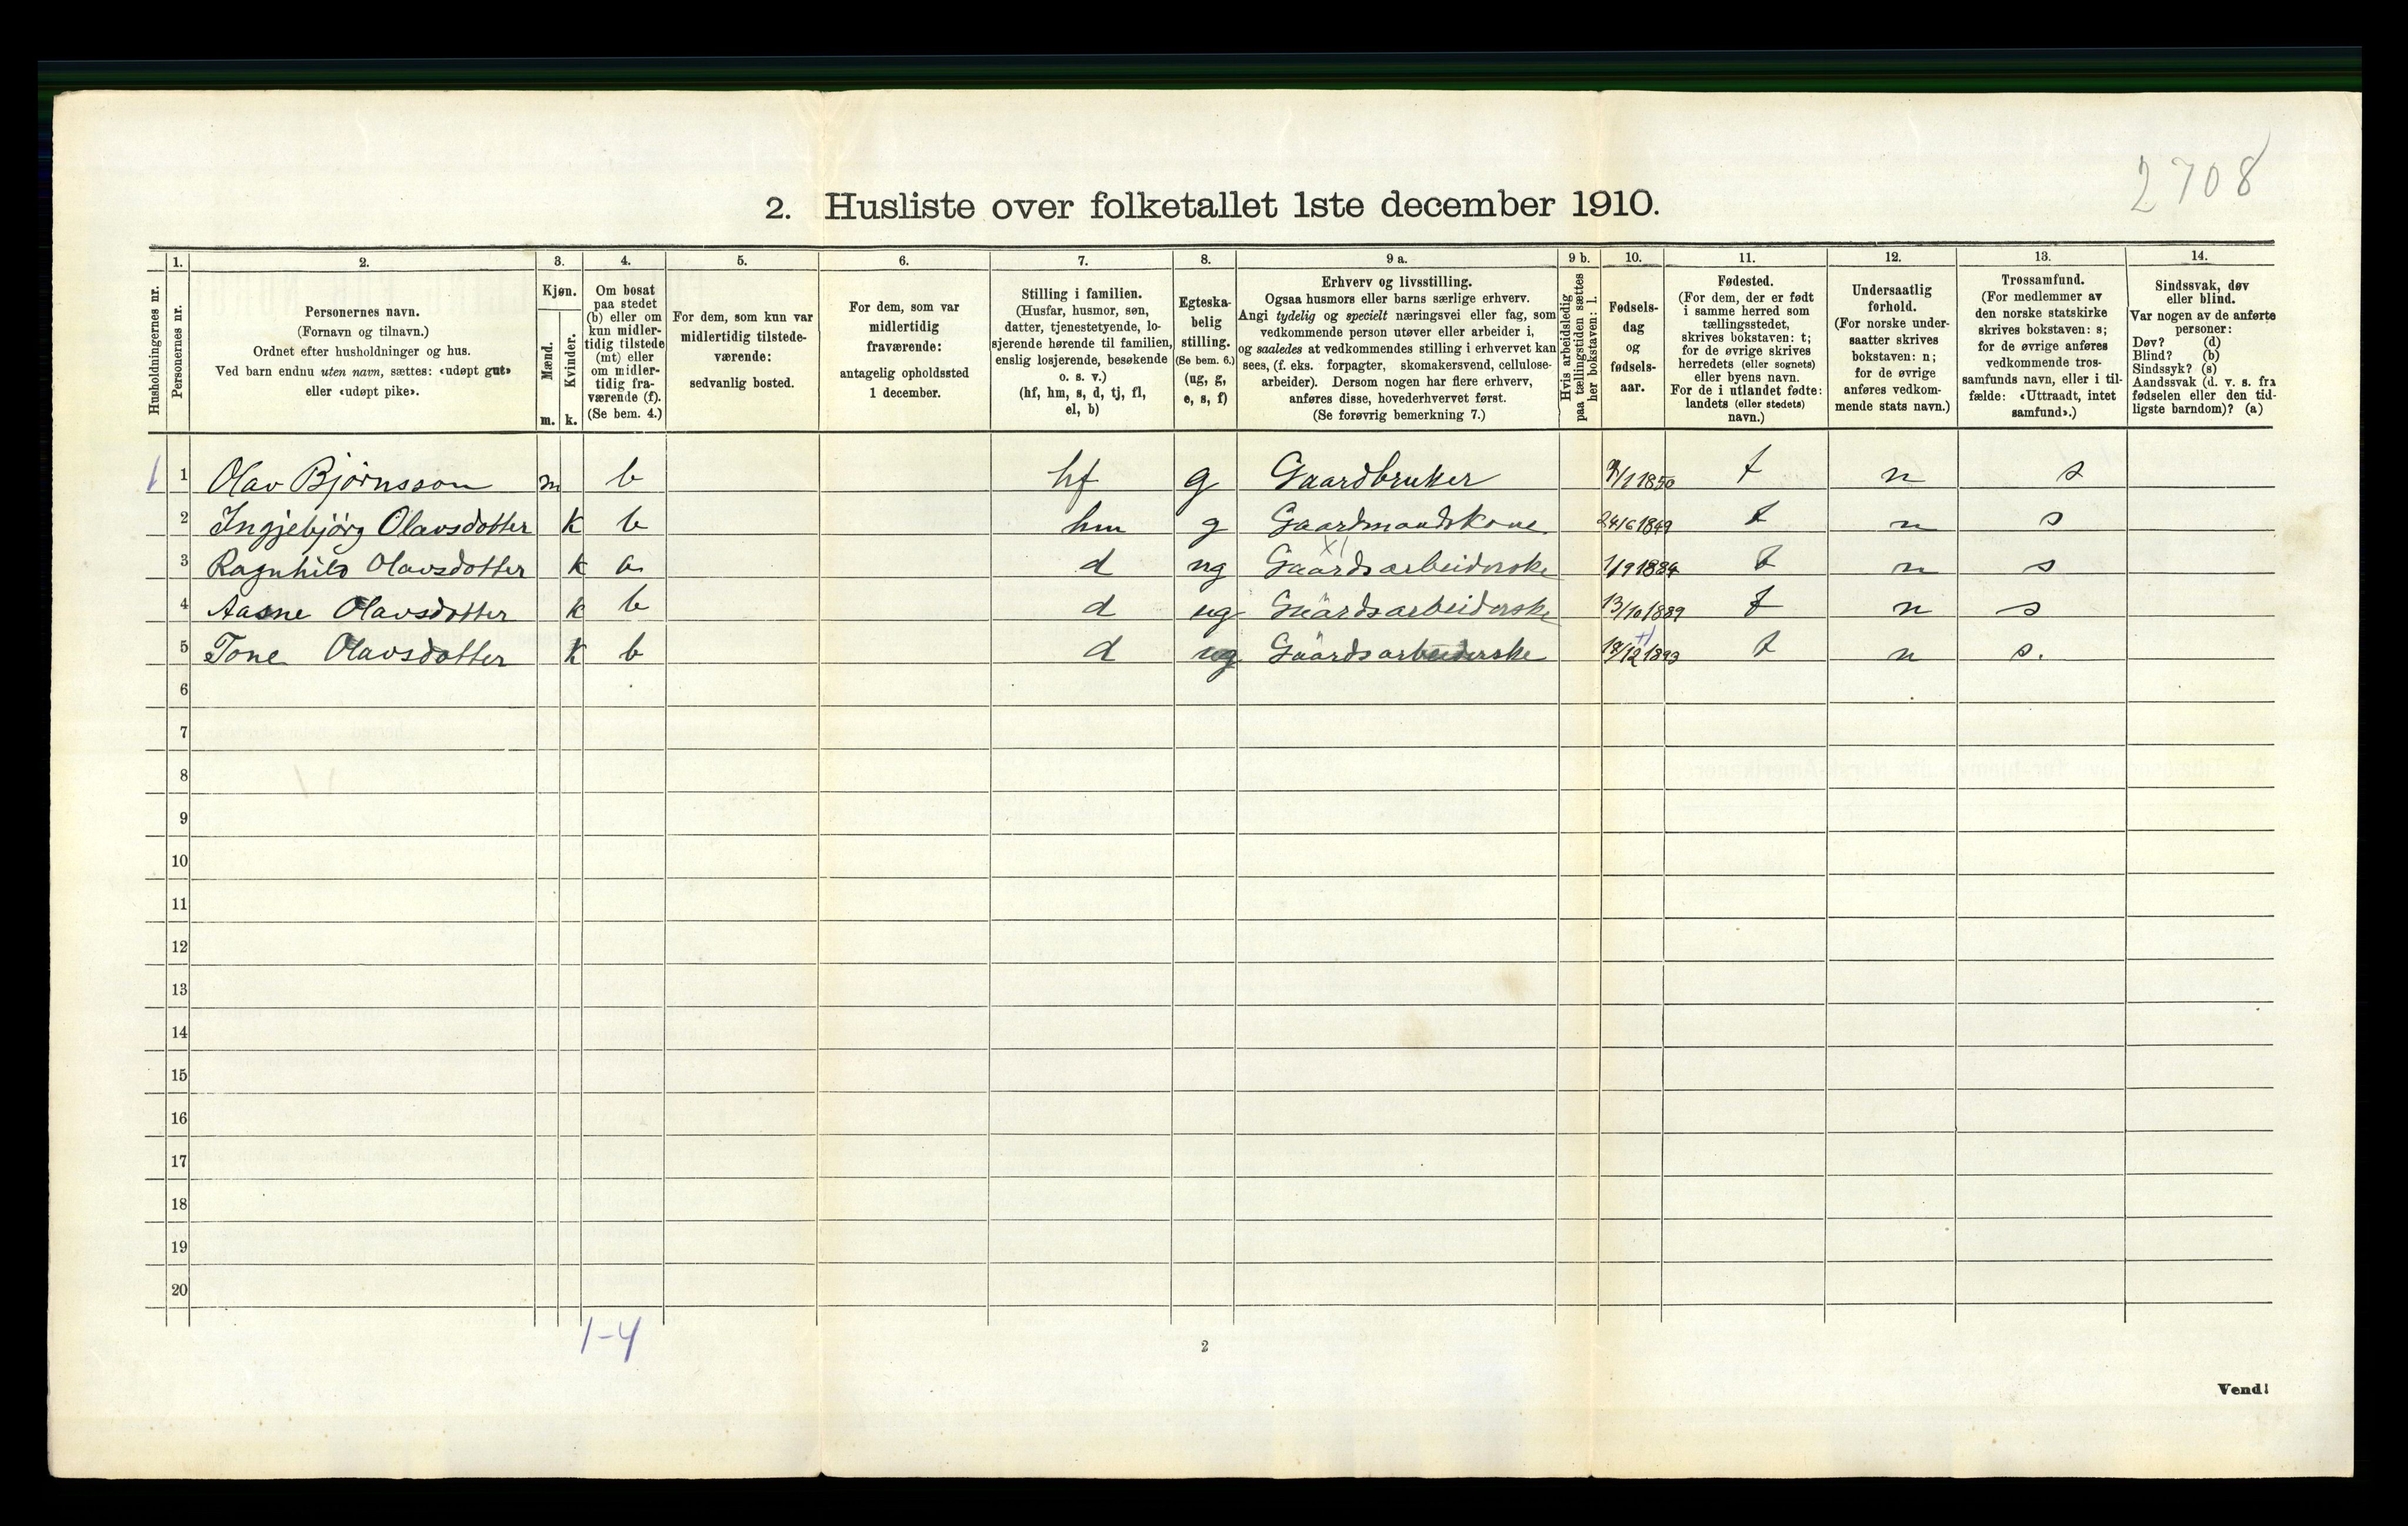 2708
2. Husliste over folketallet 1ste december 1910.
Husholdningernes nr.
1.
Personernes nr.
2.
Personernes navn.
(Fornavn og tilnavn.)
Ordnet efter husholdninger og hus.
Ved barn endnu uten navn, sættes: «udøpt gut»
eller «udøpt pike».
3.
Kjøn.
Mænd.
Kvinder.
m. k.
4.
Om bosat
paa stedet
(b) eller om
kun midler-
tidig tilstede
(mt) eller
om midler-
tidig fra-
værende (f).
(Se bem. 4.)
5.
For dem, som kun var
midlertidig tilstede-
værende:
sedvanlig bosted.
6.
For dem, som var
midlertidig
fraværende:
antagelig opholdssted
1 december.
7.
Stilling i familien.
(Husfar, husmor, søn,
datter, tjenestetyende, lo-
sjerende hørende til familien,
enslig losjerende, besøkende
o. s. v.)
(hf, hm, s, d, tj, fl,
el, b)
8.
Egteska-
belig
stilling.
(Se bem. 6.)
(ug, g,
e, s, f)
9 a.
Erhverv og livsstilling.
Ogsaa husmors eller barns særlige erhverv.
Angi tydelig og specielt næringsvei eller fag, som
vedkommende person utøver eller arbeider i,
og saaledes at vedkommendes stilling i erhvervet kan
sees, (f. eks. forpagter, skomakersvend, cellulose-
arbeider). Dersom nogen har flere erhverv,
anføres disse, hovederhvervet først.
(Se forøvrig bemerkning 7.)
9 b.
Hvis arbeidsledig
paa tællingstiden sættes
her bokstaven: l.
10.
Fødsels-
dag
og
fødsels-
aar.
11.
Fødested.
(For dem, der er født
i samme herred som
tællingsstedet,
skrives bokstaven: t;
for de øvrige skrives
herredets (eller sognets)
eller byens navn.
For de i utlandet fødte:
landets (eller stedets)
navn.)
12.
Undersaatlig
forhold.
(For norske under-
saatter skrives
bokstaven: n;
for de øvrige
anføres vedkom-
mende stats navn.)
13.
Trossamfund.
(For medlemmer av
den norske statskirke
skrives bokstaven: s;
for de øvrige anføres
vedkommende tros-
samfunds navn, eller i til-
fælde: «Uttraadt, intet
samfund».)
14.
Sindssvak, døv
eller blind.
Var nogen av de anførte
personer:
Døv? (d)
Blind? (b)
Sindssyk? (s)
Aandssvak (d. v. s. fra
fødselen eller den tid-
ligste barndom)? (a)
1 1 Olav Bjørnsson m b hf g Gaardbruker t n s
2 Ingjebjörg Olavsdotter k b hm g Gaardmandskone 24/6 1849 t n s
3 Ragnhild Olavsdotter k d ug Gaardsarbeiderske 1/9 1884 t n s
4 Aasne Olavsdotter k b d ug Gaardsarbeiderske 13/10 1889 t n s
5 Tone Olavsdotter k b d ug Gaardsarbeiderske 18/12 1893 t n s.
6
7
8
9
10
11
12
13
14
15
16
17
18
19
20
1-4
2
Vend!